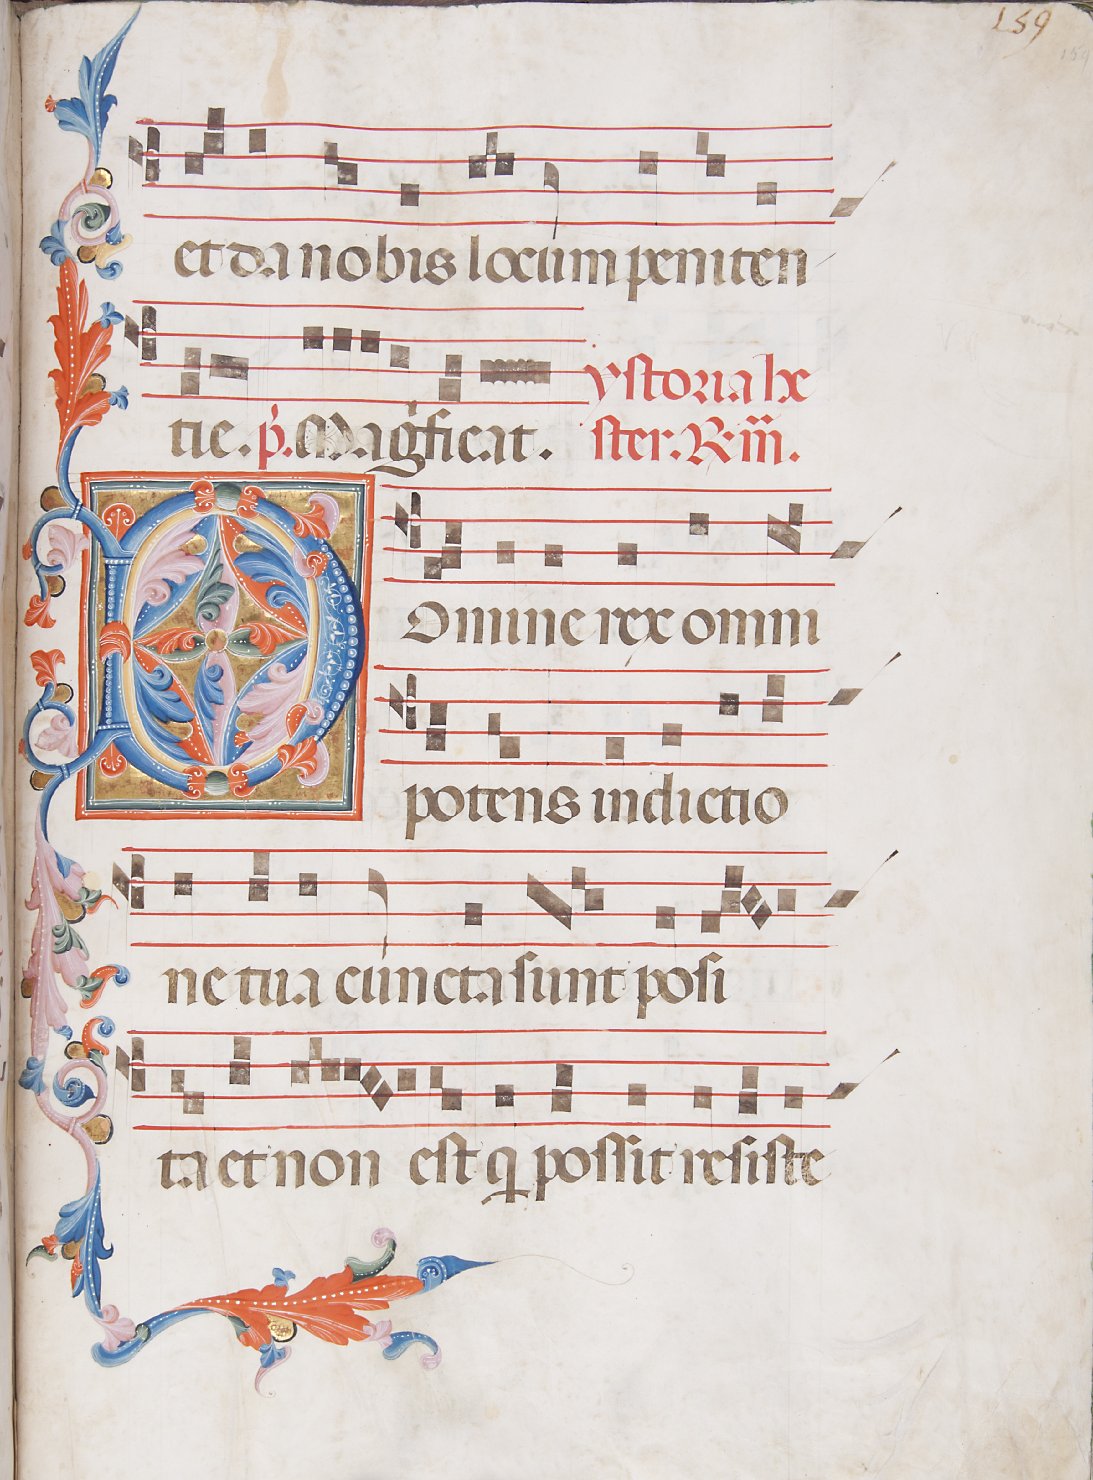 159
159
et da nobis locum peniten
ystoria he
tie. p̄. Mag̃ficat. ster. R̃m̃.
Domine rex omni
potens indictio
ne tua cuncta sunt posi
ta et non est q̇ possit resiste